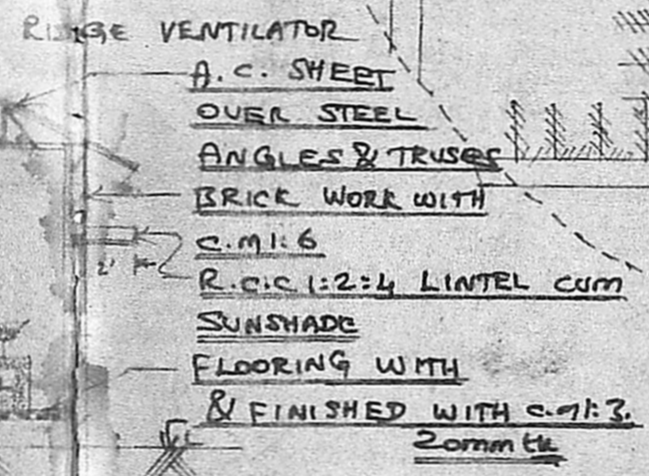 RIDGE VENTILATOR
A.C. SHEET
OVER STEEL
ANGLES & TRUSES
BRICK WORK WITH
C.M 1:6
2'
R.C.C 1:2:4 LINTEL CUM
SUNSHADE
FLOORING WITH
& FINISHED WITH C.M 1:3.
20mm tk